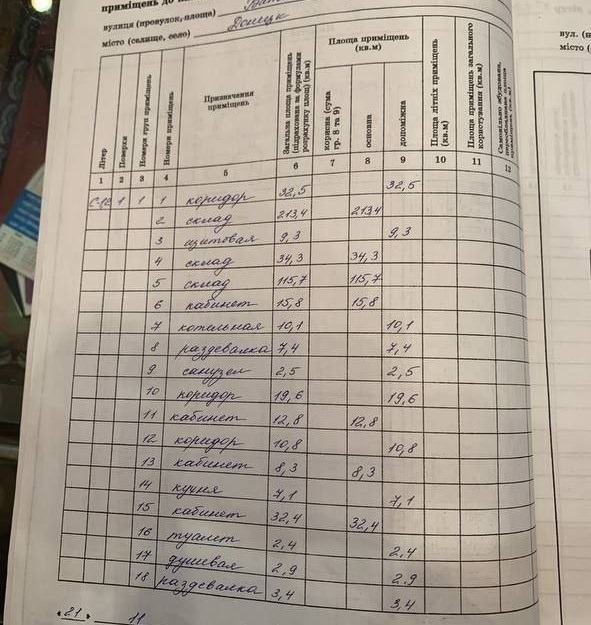 приміщень до
вулиця (провулок, площа)
місто (селище, село) Донецк
вул. (п
місто (
Літер
Поверхи
Номери груп приміщень
Номери приміщень
Призначення приміщень
Загальна площа приміщень (підрахована за формулами розрахунку площ) (кв.м)
Площа приміщень (кв.м)
корисна (сума гр. 8 та 9)
основна
допоміжна
Площа літніх приміщень (кв.м)
Площа приміщень загального користування (кв.м)
1 2 3 4 5 6 7 8 9 10 11 12
1 1 1 коридор 32,5 32,5
2 склад 213,4 213,4
3 щитовая 9,3 9,3
4 склад 34,3 34,3
5 склад 115,7 115,7
6 кабинет 15,8 15,8
7 котельная 10,1 10,1
8 раздевалка 7,4 7,4
9 санузел 2,5 2,5
10 коридор 19,6 19,6
11 кабинет 12,8 12,8
12 коридор 10,8 10,8
13 кабинет 8,3 8,3
14 кухня 7,1 7,1
15 кабинет 32,4 32,4
16 туалет 2,4 2,4
17 душевая 2,9 2,9
18 раздевалка 3,4 3,4
« 21 » 11